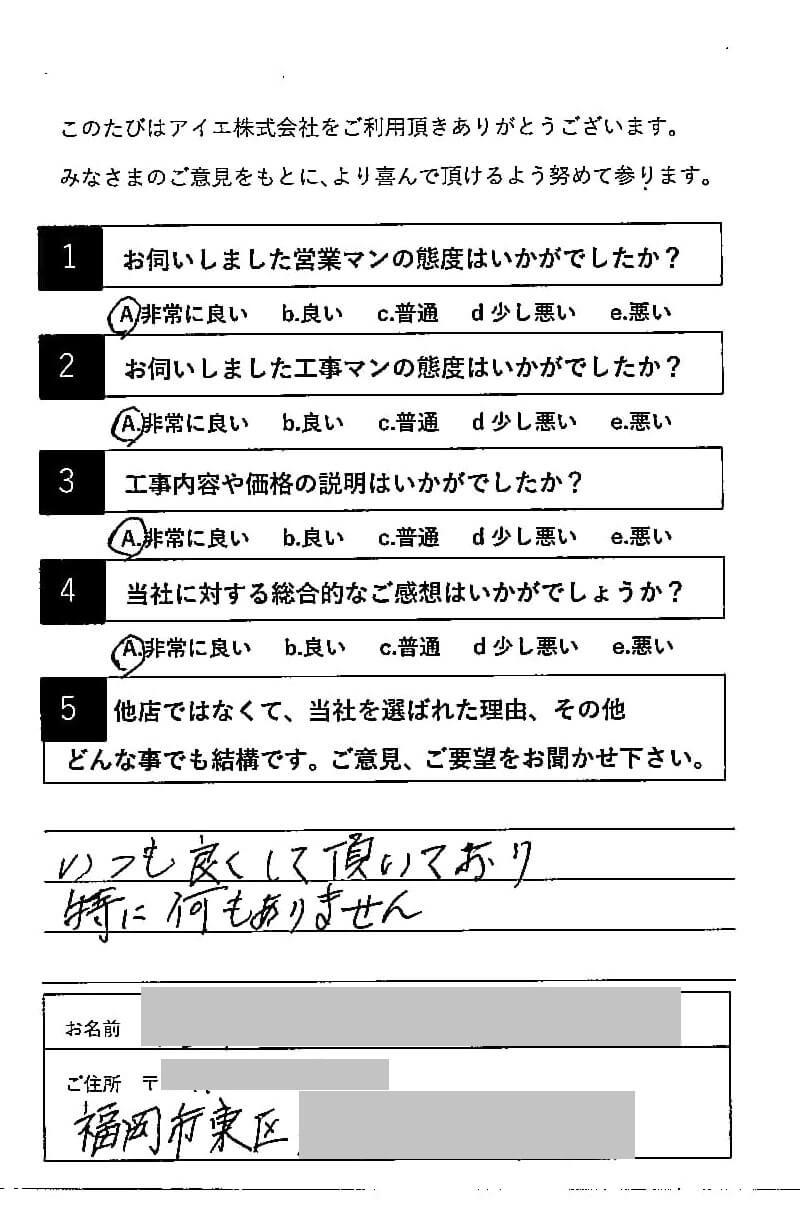 このたびはアイエ株式会社をご利用頂きありがとうございます。
みなさまのご意見をもとに、より喜んで頂けるよう努めて参ります。
1 お伺いしました営業マンの態度はいかがでしたか？
A.非常に良い b.良い c.普通 d 少し悪い e.悪い
2 お伺いしました工事マンの態度はいかがでしたか？
A.非常に良い b.良い c.普通 d 少し悪い e.悪い
3 工事内容や価格の説明はいかがでしたか？
A.非常に良い b.良い c.普通 d 少し悪い e.悪い
4 当社に対する総合的なご感想はいかがでしょうか？
A.非常に良い b.良い c.普通 d 少し悪い e.悪い
5 他店ではなくて、当社を選ばれた理由、その他
どんな事でも結構です。ご意見、ご要望をお聞かせ下さい。
いつも良くして頂いており
特に何もありません
お名前
ご住所 〒
福岡市東区